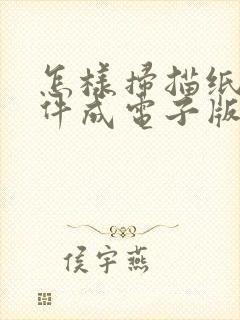 怎樣掃描纸
件成電子版
侯宇燕